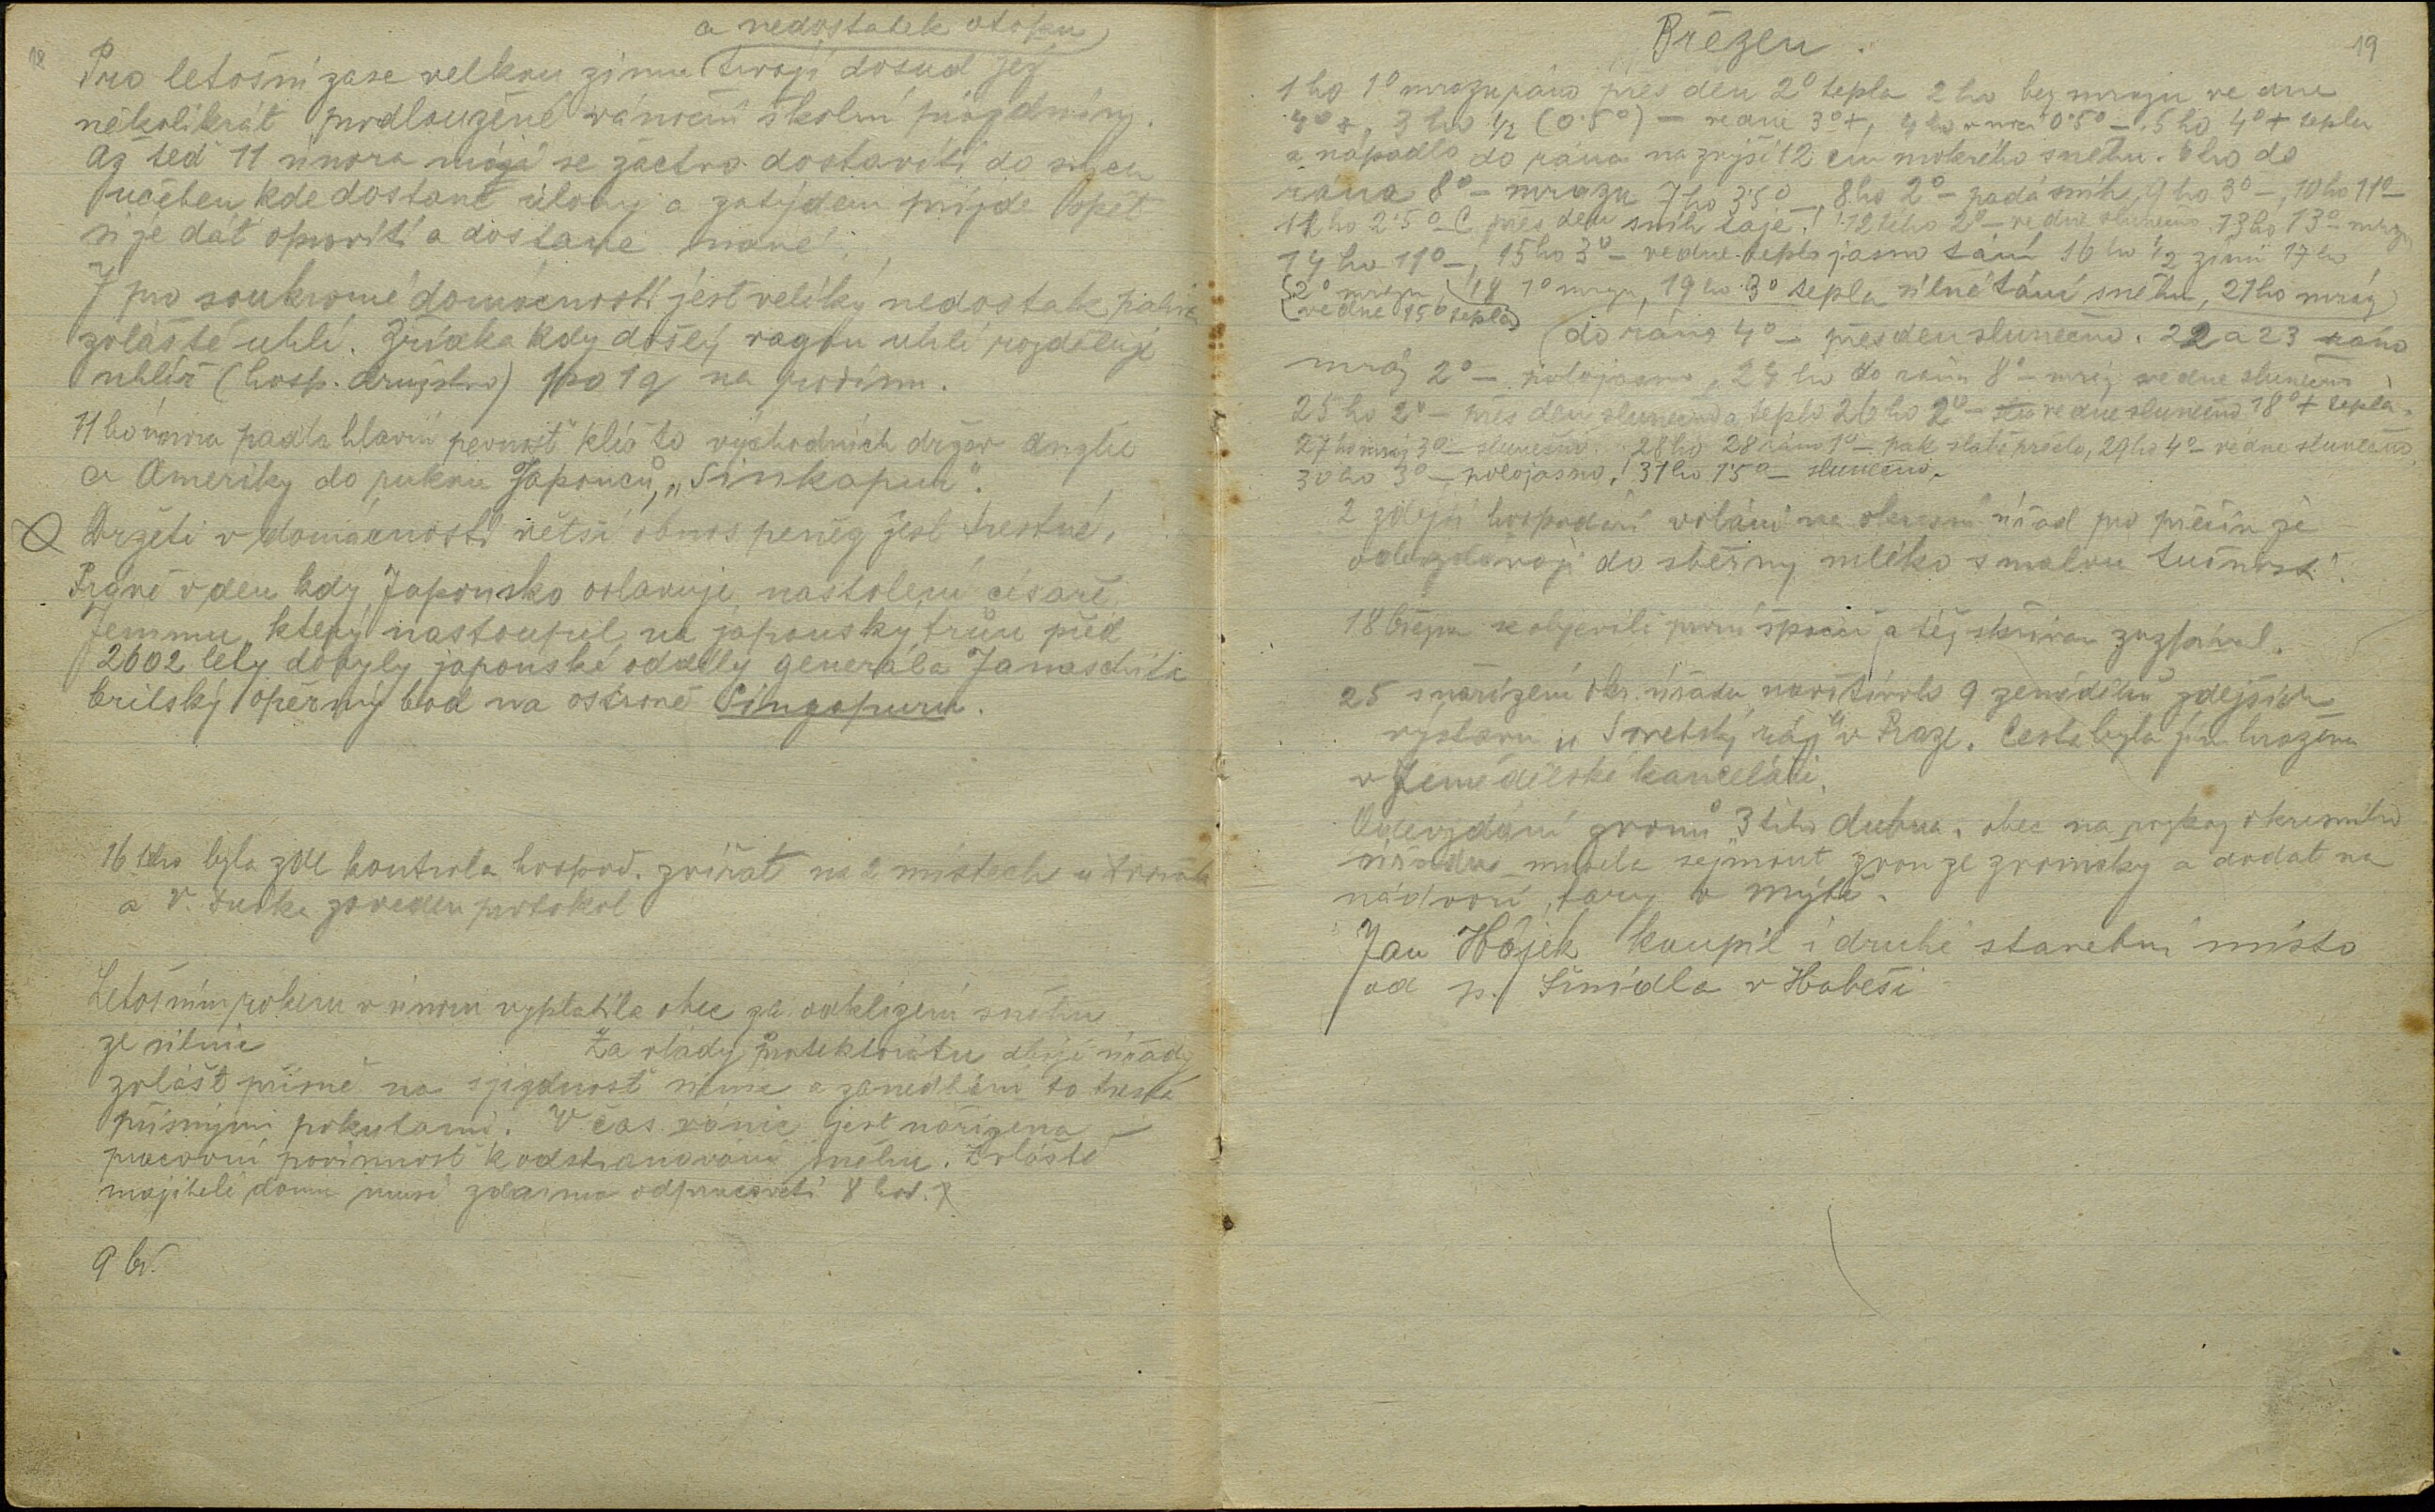 18
a nedostatek otopu
Pro letošní zase velkou zimu trvají dosud již
několikrát prodloužené vánoční školní prázdniny.
Až teď 11 února mají se žactvo dostaviti do svých
učeben kde dostane úlohy a za týden přijde opět
si je dát opraviti a dostane nové.
I pro soukromé domácnosti jest veliký nedostatek paliva
zvláště uhlí. Zřídka kdy došlý vagon uhlí rozděluje
uhlíř (hosp. družstvo) po 1 q na rodinu.
11ho února padla hlavní pevnost klíč to východních držav Anglie
a Ameriky do rukou Japonců, „Sinkapur".
Držeti v domácnosti větší obnos peněz jest trestné.
Právě v den kdy Japonsko oslavuje nastolení císaře
Jemmu, který nastoupil na japonský trůn před
2602 léty dobyly japonské oddíly generála Jamaschita
britský opěrný bod na ostrově Singapuru.
16ho byla zde kontrola hospod. zvířat na 2 místech u
a V. Turka zaveden protokol
Letošním rokem v únoru vyplatila obec za odklizení sněhu
ze silnic Za vlády protektorátu dbají úřady
zvlášt přísně na sjízdnost silnic a zanedbání to trestá
přísnými pokutami. V čas vánic jest nařízena
pracovní povinnost k odstraňování sněhu. Zvláště
majitelé domu musí zdarma odpracovati 8 hod.
9 bř.
Březen.
19
1ho 1° mrazu ráno přes den 2° tepla 2ho bez mrazu ve dne
4°+, 3ho 1/2 (0.5°) – ve dne 3°+, 4ho 0.5° –, 5ho 4°+ tepla
a napadlo do rána na zvýší 12 cm mokrého sněhu. 6ho do
rána 8° – mrazu 7ho 3.5° –, 8ho 2° – padá sníh, 9ho 3° –, 10ho 11° –
11ho 2.5° – C přes den sníh taje! 12tého 2° – ve dne slunečno 13ho 13° mrazu
14ho 11° –, 15ho 3° – ve dne teplo jasno tání 16ho 1/2 zimi 17ho
2° mrazu 18 1° mrazu, 19ho 3° tepla silné tání sněhu, 21ho mráz
ve dne 15° tepla
do rána 4° – přes den slunečno. 22 a 23 ráno
mráz 2° – polojasno, 24ho do rána 8° – mráz ve dne slunečno
25ho 2° – přes den slunečno a teplo 26ho 2° – ve dne slunečno 18°+ tepla.
27ho mráz 3° – slunečno. 28ho 28 ráno 1° – pak slabě pršelo, 29ho 4° – ve dne slunečno
30ho 3° – polojasno! 31ho 1.5° – slunečno.
2 zdejší hospodáři voláni na okresní úřad pro příčinu že
odevzdávají do sběrny mléko s malou tučností.
18 března se objevili první špačci a též skřivan zazpíval.
25 s nařízení okr. úřadu navštívilo 9 zemědělců zdejších
výstavu „Sovětský ráj" v Praze. Cesta byla jim hrazena
v Zemědělské kanceláři.
Odevzdání zvonů 3tího dubna. obec na rozkaz okresního
úřadu musela sejmout zvon ze zvoničky a dodat na
nádvoří fary v Mýtě.
Jan Hájek koupil i druhé stavební místo
od p. Šmídla v Habeši